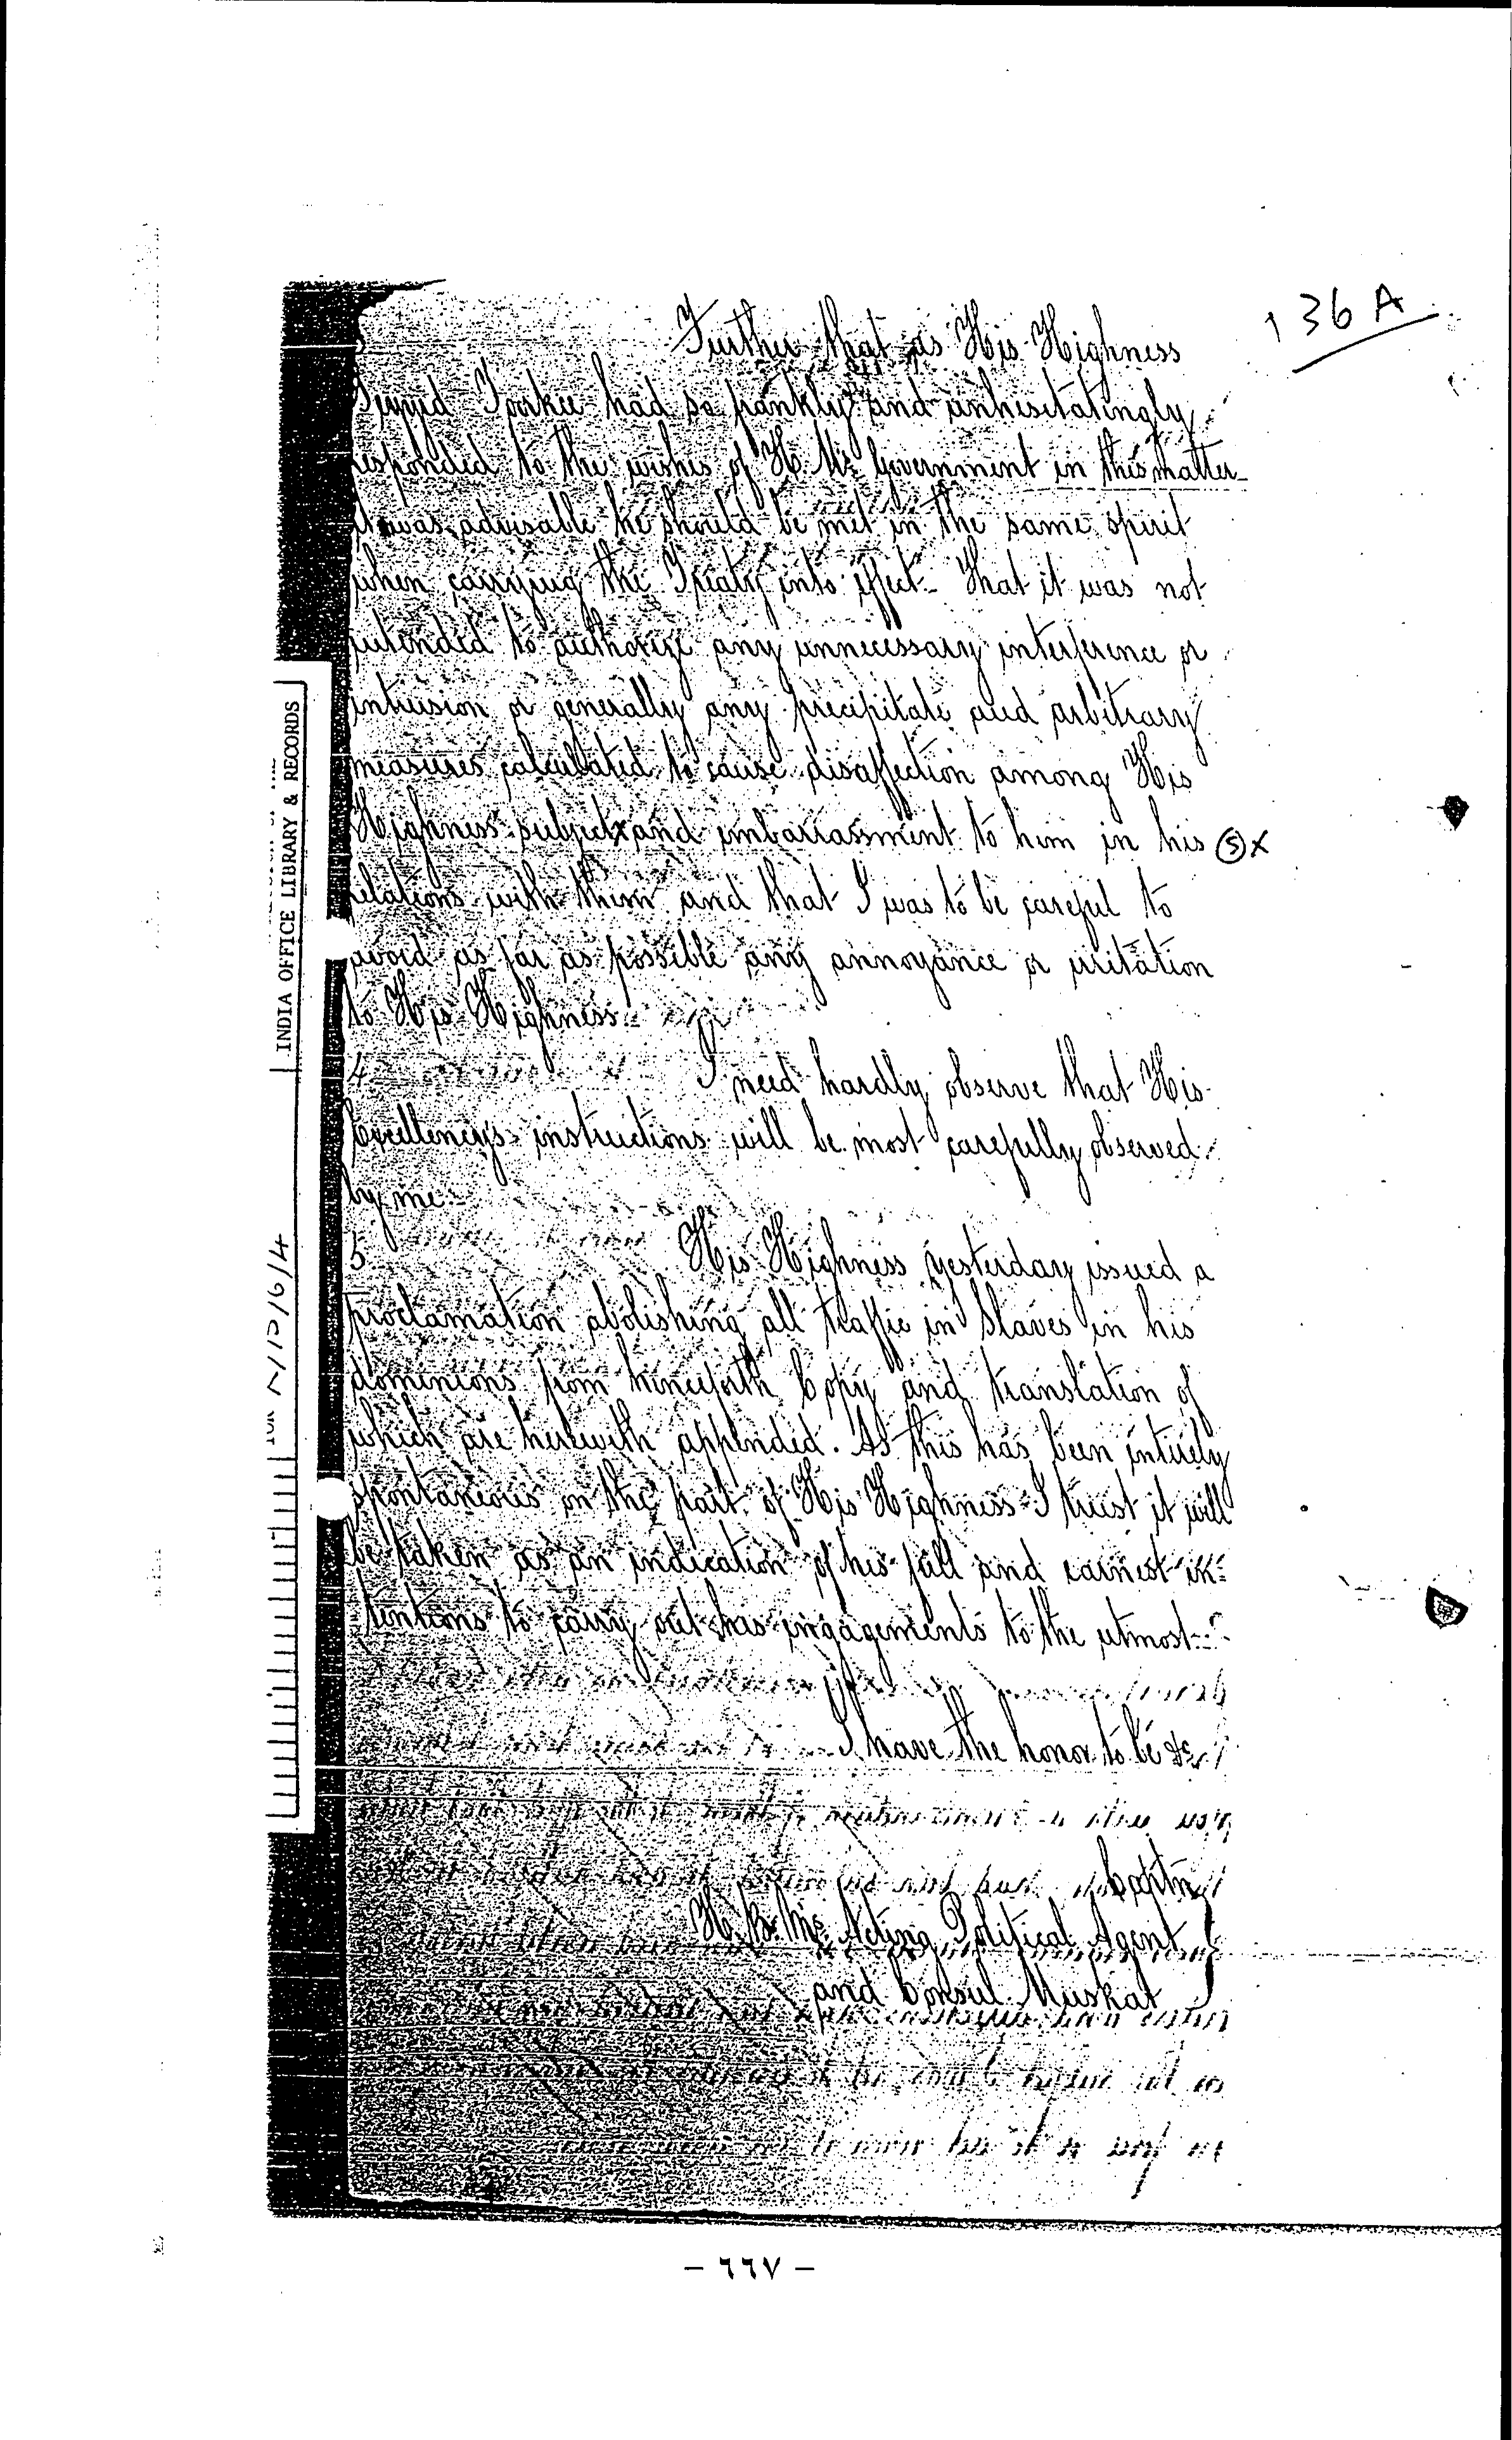 136 A
Further that as His Highness
Syyid Toorkee had so frankly and unhesitatingly
responded to the wishes of H. Ms Government in this matter
it was advisable he should be met in the same spirit
when carrying the Treaty into effect - That it was not
intended to authorize any unnecessary interference or
intrusion or generally any precipitate and arbitrary
measures calculated to cause disaffection among His
Highness subjects and embarrassment to him in his (5) x
relations with them and that I was to be careful to
avoid as far as possible any annoyance or irritation
to His Highness -
4 I need hardly observe that His
Excellencys instructions will be most carefully observed
by me -
5 His Highness yesterday issued a
proclamation abolishing all traffic in Slaves in his
dominions from henceforth Copy and translation of
which are herewith appended. As this has been entirely
spontaneous on the part of His Highness I trust it will
be taken as an indication of his full and earnest in-
tentions to carry out his engagements to the utmost -
I have the honor to be &c
Captn
H. B. Ms Acting Political Agent
and Consul Muskat
INDIA OFFICE LIBRARY & RECORDS
/15/6/4
- ٦٦٧ -